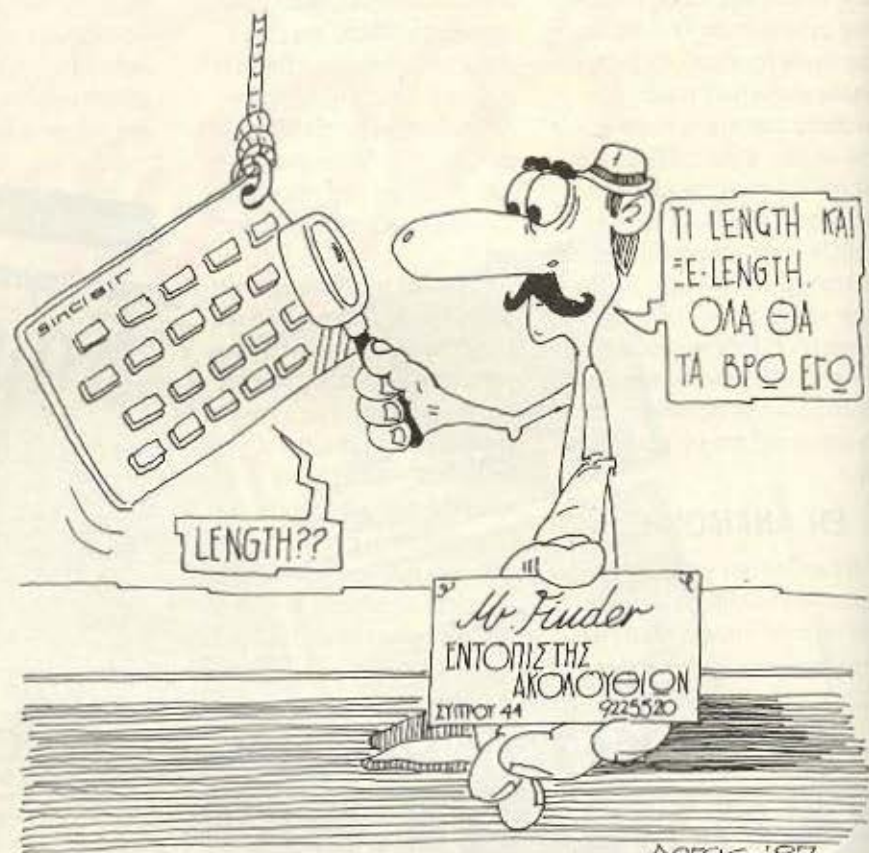 sinclair
LENGTH??
ΤΙ LENGTH ΚΑΙ
ΞΕ-LENGTH.
ΟΛΑ ΘΑ
ΤΑ ΒΡΩ ΕΓΩ
Mr. Finder
ΕΝΤΟΠΙΣΤΗΣ
ΑΚΟΛΟΥΘΙΩΝ
9225520